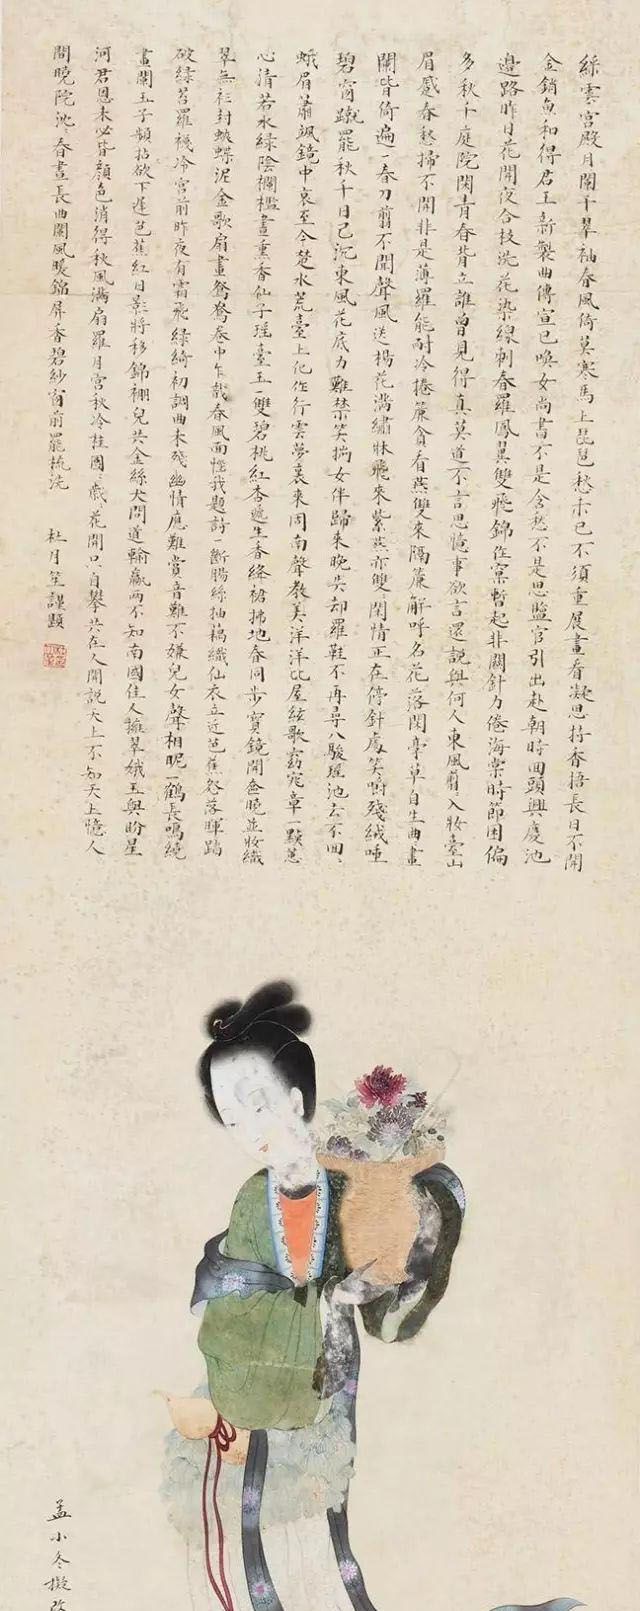 絲雲宮殿月闌干翠袖春風倚莫寒馬上琵琶愁未已不須重展畫看凝思持香捂長日不開
金銷魚和得君王新製曲傳宣已喚女尚書不是含愁不是思監官引出赴朝時回頭興慶池
邊路昨日花開夜合枝洗花染線刺春羅鳳翼雙飛錦作窠暫起非關針力倦海棠時節困偏
多秋千庭院閑青春背立誰曾見得真莫道不言思憶事欲言還說與何人東風剪入妝臺山
眉蹙春愁掃不開非是薄羅能耐冷捲簾貪看燕雙來隔簾解呼名花落閑亭草自生曲畫
闌皆倚遍一春刀剪不聞聲風送楊花滿繡牀飛來紫燕亦雙閑情正在停針處笑嚼殘絨唾
碧窗蹴罷秋千日已沉東風花底力難禁笑揣女伴歸來晚失却羅鞋不再尋八駿瑤池去不回
蛾眉蕭颯鏡中哀至今楚水荒臺上化作行雲夢裏來周南聲教美洋洋比屋絃歌窈窕章一點蕙
心清若水綠陰欄檻晝熏香仙子瑤臺玉一雙碧桃紅杏遞生香絳裙拂地春同步寶鏡開奩曉並妝織
翠無社封蛺蝶泥金歌扇畫鴛鴦卷中乍哉春風面惺我題詩一斷腸絲抽藕織仙衣立近芭蕉怨落暉踏
破綠苔羅襪冷宮前昨夜有霜飛綠綺初調曲未殘幽情應難賞音難不嫌兒女聲相昵一鶴長鳴繞
畫闌玉子頻拈欲下遲芭蕉紅日影將移錦棚兒共金絲犬問道輸贏兩不知南國佳人擁翠娥玉與盼星
河君恩未必皆顏色消得秋風滿扇羅月宮秋冷桂團團歲歲花開只自攀共在人間說天上不知天上憶人
間曉院沈沈春晝長曲闌風暖錦屏香碧紗窗前罷梳洗
杜月笙謹題
孟小冬擬改